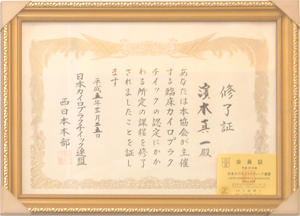 修了証
濱木真一殿
あなたは本協会が主催
する臨床カイロプラク
チイックの認定にかか
わる所定の課程を修了
されましたことを証し
ます
日本カイロプラクチイック連盟
西日本本部